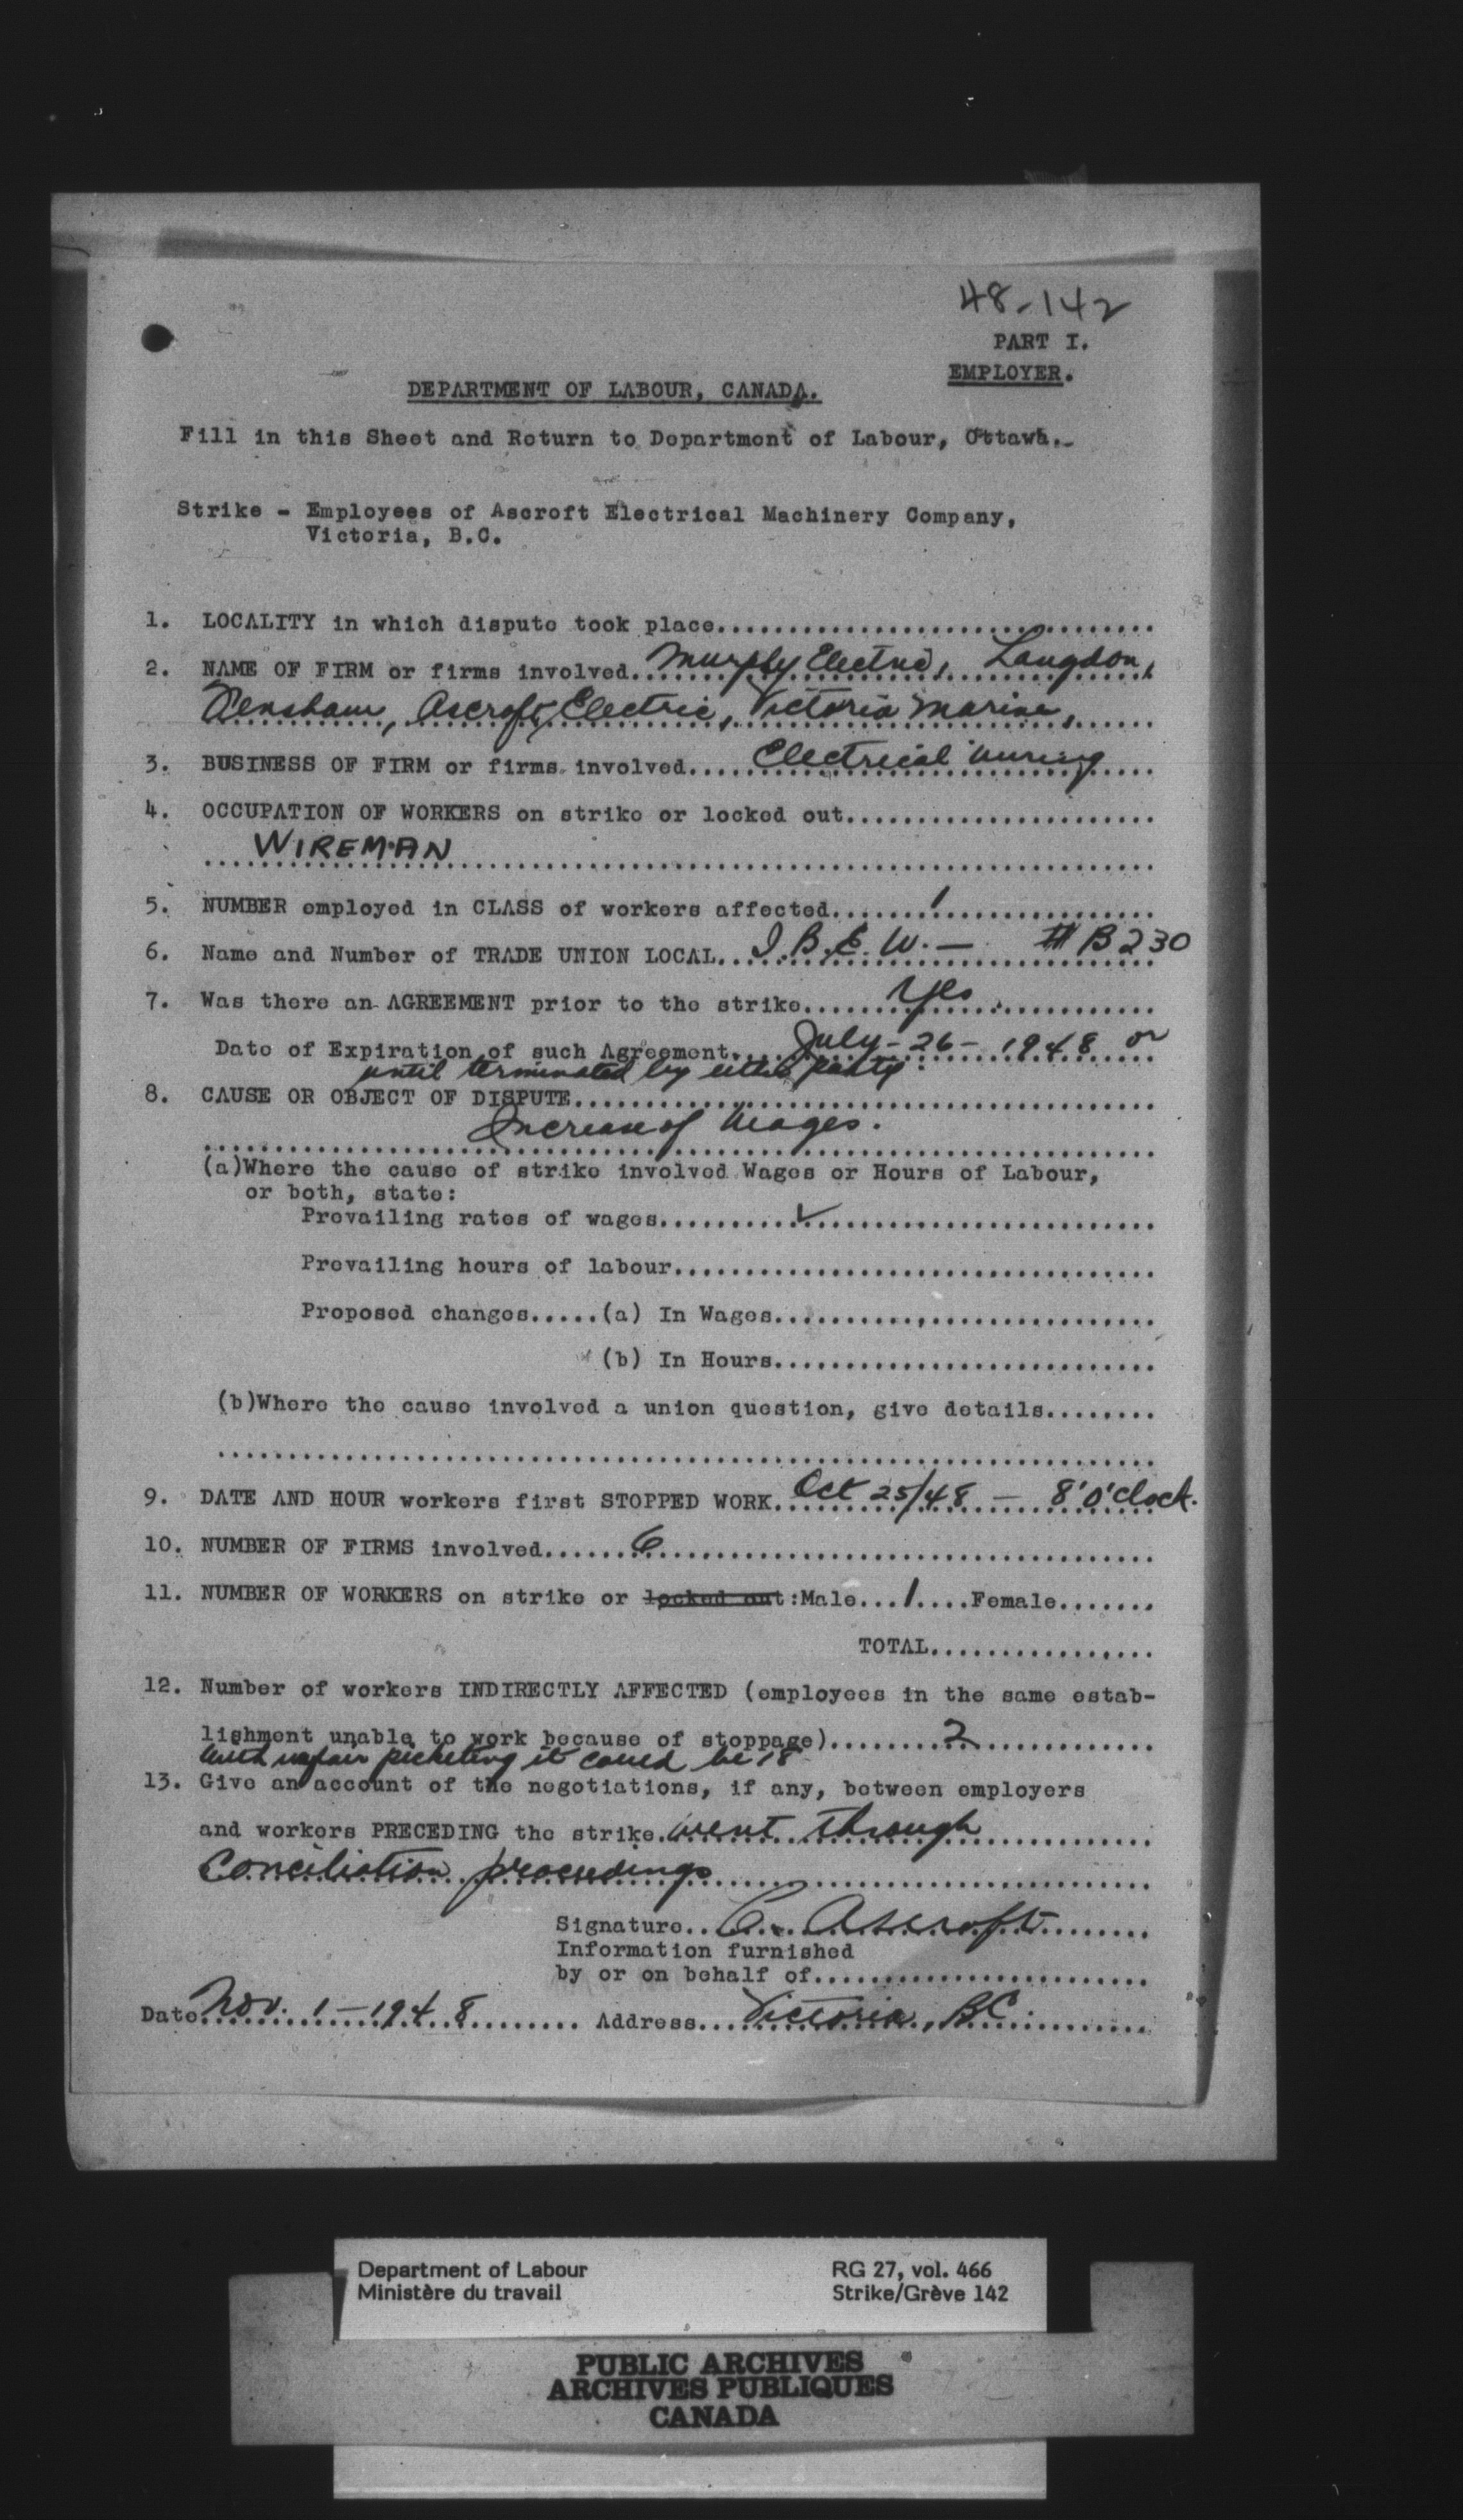 48-142
PART I.
EMPLOYER.
DEPARTMENT OF LABOUR, CANADA.
Fill in this Sheet and Return to Department of Labour, Ottawa.
Strike - Employees of Ascroft Electrical Machinery Company,
Victoria, B.C.
1. LOCALITY in which dispute took place................................
2. NAME OF FIRM or firms involved. Murphy Electric, Langdon,
Renshaw, Ascroft Electric, Victoria Marine,
3. BUSINESS OF FIRM or firms involved.... Electrical Wiring
4. OCCUPATION OF WORKERS on strike or locked out......................
WIREMAN
5. NUMBER employed in CLASS of workers affected....... 1
6. Name and Number of TRADE UNION LOCAL.. I.B.E.W. — # B 230
7. Was there an AGREEMENT prior to the strike...... Yes
Date of Expiration of such Agreement.... July - 26 - 1948 or
until terminated by either party.
8. CAUSE OR OBJECT OF DISPUTE.........................................
Increase of Wages.
(a)Where the cause of strike involved Wages or Hours of Labour,
or both, state:
Prevailing rates of wages.......... ✓
Prevailing hours of labour..................................
Proposed changes.....(a) In Wages...........................
(b) In Hours...........................
(b)Where the cause involved a union question, give details........
..................................................................
9. DATE AND HOUR workers first STOPPED WORK. Oct 25/48 — 8'O'clock.
10. NUMBER OF FIRMS involved...... 6
11. NUMBER OF WORKERS on strike or locked out:Male...1....Female.......
TOTAL................
12. Number of workers INDIRECTLY AFFECTED (employees in the same estab-
lishment unable to work because of stoppage)........ 2
with unfair picketing it could be 18
13. Give an account of the negotiations, if any, between employers
and workers PRECEDING the strike. went through
Conciliation proceedings
Signature.. C. Ascroft
Information furnished
by or on behalf of........................
Date Nov. 1 - 1948 Address... Victoria, B.C.
Department of Labour
Ministère du travail
RG 27, vol. 466
Strike/Grève 142
PUBLIC ARCHIVES
ARCHIVES PUBLIQUES
CANADA